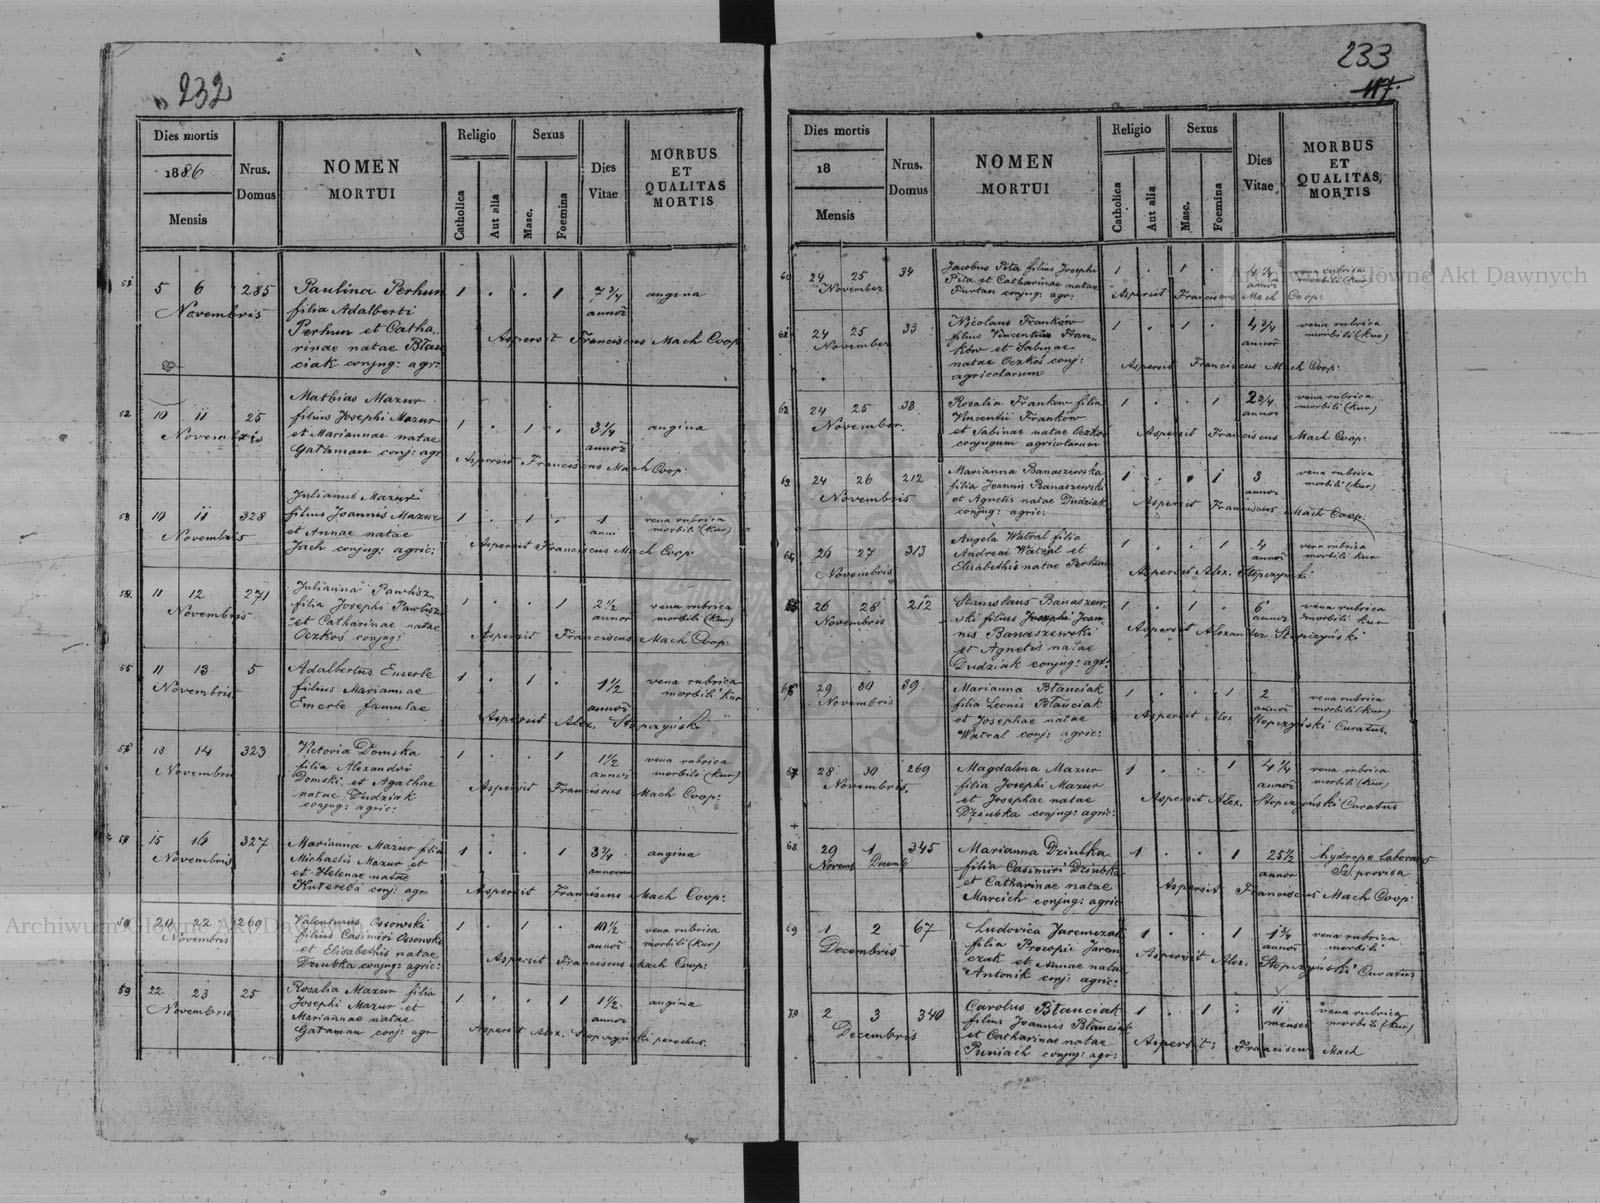 232
Dies mortis
1886
Mensis
Nrus.
Domus
NOMEN
MORTUI
Religio
Catholica
Aut alia
Sexus
Masc.
Foemina
Dies
Vitae
MORBUS
ET
QUALITAS
MORTIS
5 6 285 Paulina Perhun 1 . . 1 7 3/4 angina
Novembris filia Adalberti annor
Perhun et Catha
rinae natae Błau
ciak conjug: agr:
Aspersit Franciscus Mach Coop
52 10 11 25 Mathias Mazur
Novembris filius Josephi Mazur 1 . 1 . 3 1/4 angina
et Mariannae natae annor
Gataman conj: agr
Aspersit Franciscus Mach Coop:
53 10 11 328 Julianus Mazur
Novembris filius Joannis Mazur 1 . 1 . 1 vena rubrica
et Annae natae anni morbili (Kur)
Jach conjug: agric:
Aspersit Franciscus Mach Coop
54 11 12 271 Julianna Pawlisz
Novembris filia Josephi Pawlisz 1 . . 1 2 1/2 vena rubrica
et Catharinae natae annor morbili (Kur)
Oczkoś conjug:
Aspersit Franciscus Mach Coop:
55 11 13 5 Adalbertus Emerle 1 . 1 . 1 1/2 vena rubrica
Novembris filius Mariannae annor morbili Kur
Emerle famulae
Aspersit Alex. Stopczyński
56 13 14 323 Victoria Domska 1 . . 1 1 1/2 vena rubrica
Novembris filia Alexandri annor morbili (Kur)
Domski et Agathae
natae Dudziak
conjug: agric:
Aspersit Franciscus Mach Coop:
57 15 16 327 Marianna Mazur filia 1 . . 1 3 3/4 angina
Novembris Michaelis Mazur et annorum
et Helenae natae
Kutereba conj: agr
Aspersit Franciscus Mach Coop:
58 20 22 269 Valentinus Ossowski 1 . 1 . 10 1/2 vena rubrica
Novembris filius Casimiri Ossowski annor morbili (Kur)
et Elisabethis natae
Dziubka conjug: agric:
Aspersit Franciscus Mach Coop:
59 22 23 25 Rosalia Mazur filia 1 . . 1 1 1/2 angina
Novembris Josephi Mazur et annor
Mariannae natae
Gataman conj: agr
Aspersit Alex. Stopczyński parochus.
233
117.
Dies mortis
18
Mensis
Nrus.
Domus
NOMEN
MORTUI
Religio
Catholica
Aut alia
Sexus
Masc.
Foemina
Dies
Vitae
MORBUS
ET
QUALITAS,
MORTIS
60 24 25 34 Jacobus Pita filius Josephi 1 . 1 . vena rubrica
November Pita et Catharinae natae annor morbili (Kur)
Furtan conjug: agr:
Aspersit Franciscus Mach Coop:
24 25 33 Nicolaus Franków 1 . 1 . 4 3/4 vena rubrica
November filius Vincentii Fran annor morbili (Kur)
ków et Sabinae
natae Oczkoś conj:
agricolarum
Aspersit Franciscus Mach Coop:
62 24 25 38 Rosalia Frankow filia 1 . . 1 2 3/4 vena rubrica
November Vincentii Franków annor morbili (Kur)
et Sabinae natae Oczkoś
conjugum agricolarum
Aspersit Franciscus Mach Coop:
63 24 26 212 Marianna Banaszewska 1 . . 1 3 vena rubrica
Novembris filia Joannis Banaszewski annor morbili (Kur)
et Agnetis natae Dudziak
conjug: agric:
Aspersit Franciscus Mach Coop.
64 26 27 313 Angela Watral filia 1 . . 1 4 vena rubrica
Novembris Andreae Watral et annor morbili Kur
Elisabethis natae Perhun
Aspersit Alex. Stopczyński
65 26 28 212 Stanislaus Banaszew 1 . 1 . 6 vena rubrica
Novembris ski filius Joan annor morbili Kur
nis Banaszewski
et Agnetis natae
Dudziak conjug: agr:
Aspersit Alexander Stopczyński
66 29 30 39 Marianna Błauciak 1 . . 1 2 vena rubrica
Novembris filia Leonis Błauciak annor morbili (Kur)
et Josephae natae
Watral conj: agric:
Aspersit Alex Stopczyński Curatus.
67 28 30 269 Magdalena Mazur 1 . . 1 4 1/4 vena rubrica
Novembris filia Josephi Mazur annor morbili (Kur)
et Josephae natae
Dziubka conjug: agric:
Aspersit Alex. Stopczyński Curatus
68 29 1 345 Marianna Dziubka 1 . . 1 25 1/2 hydrope laborans
Novemb Decemb filia Casimiri Dziubka annor SS. provisa
et Catharinae natae
Marcich conjug: agric
Aspersit Franciscus Mach Coop:
69 1 2 67 Ludovica Jaremczak 1 . . 1 1 3/4 vena rubrica
Decembris filia Procopii Jarem annor morbili
czak et Annae natae
Antonik conj: agric:
Aspersit Alex. Stopczyński Curatus
70 2 3 340 Carolus Błauciak 1 . 1 . 11 vena rubrica
Decembris filius Joannis Błauciak menses morbili (Kur)
et Catharinae natae
Puniach conjug: agr:
Aspersit: Franciscus Mach
Archiwum Główne Akt Dawnych
Archiwum Główne Akt Dawnych